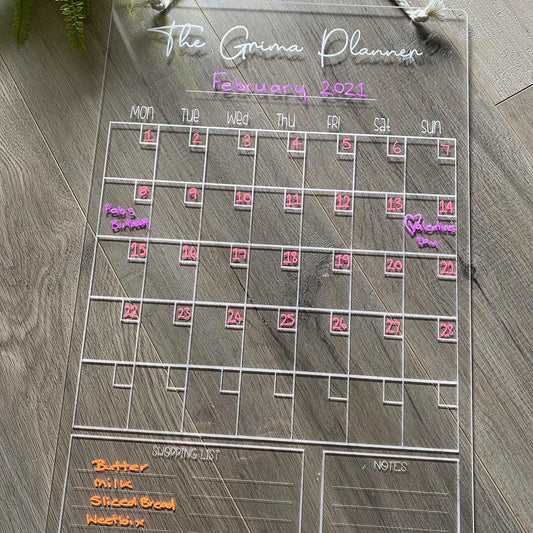 The Grima Planner
February 2021
Mon Tue Wed Thu Fri Sat Sun
1 2 3 4 5 6 7
8 9 10 11 12 13 14
Birthday
Valentine's
Day
15 16 17 18 19 20 21
22 23 24 25 26 27 28
SHOPPING LIST
NOTES
Butter
milk
Sliced Bread
Weetbix